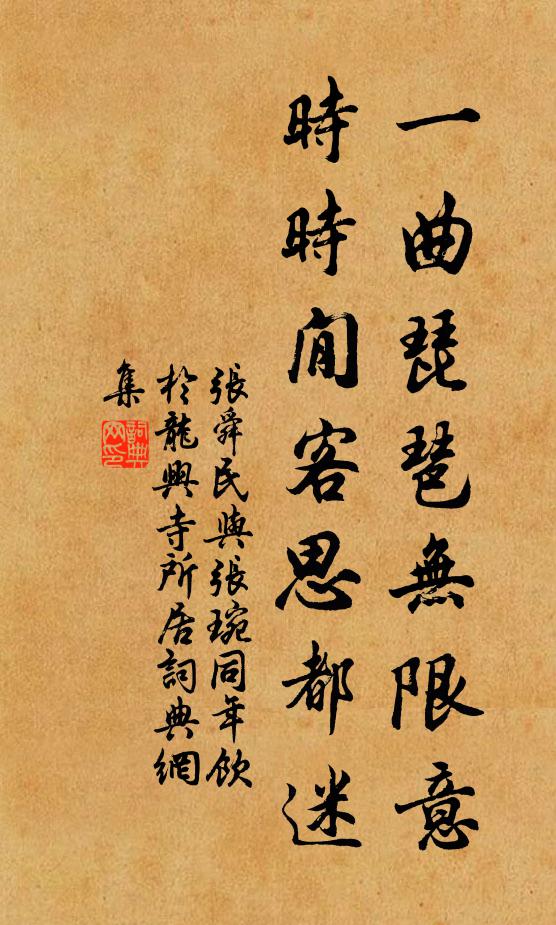 一曲琵琶無限意
時時閒客思都迷
張舜民與張琬同年飲
於龍興寺所居詞典網
集
詞典網印